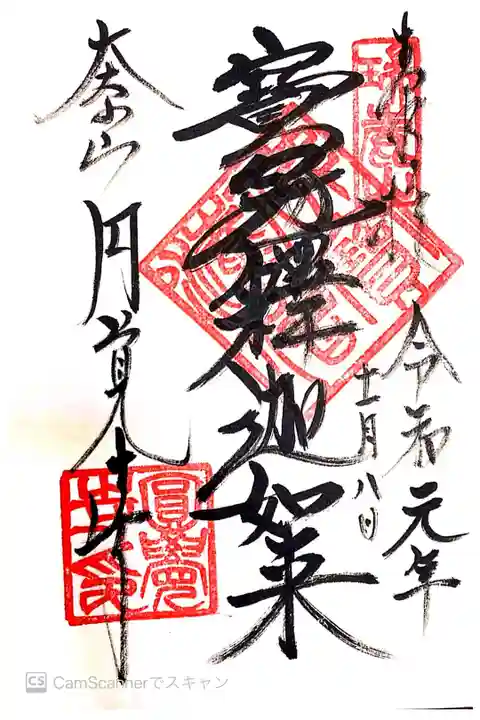 令和元年
十一月八日
寳冠釋迦如来
大本山
円覚寺
CamScannerでスキャン